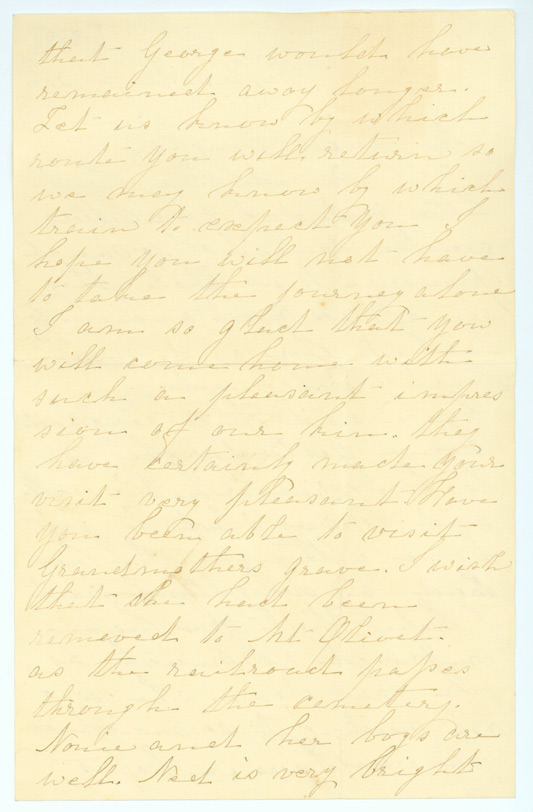 that George would have
remained away longer.
Let us know by which
route you will return so
we may know by which
train to expect you I
hope you will not have
to take the journey alone
I am so glad that you
will come home with
such a pleasant impres
sion of our kin. they
have certainly made your
visit very pleasant Have
you been able to visit
Grandmothers grave. I wish
that she had been
removed to Mt Olivet.
as the railroad passes
through the cemetery.
Nonie and her boys are
well. Ned is very bright